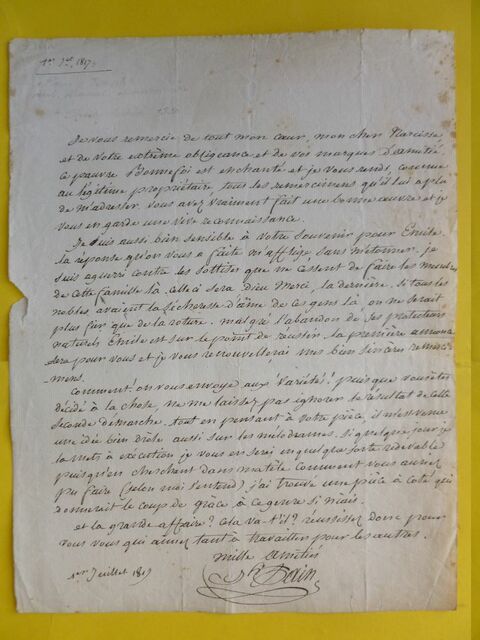 Je vous remercie de tout mon cœur, mon cher Narcisse
et de votre extrême obligeance et de vos marques d'amitié.
ce pauvre Bonnefoi est enchanté et je vous rends, comme
au légitime propriétaire, tous les remercimens qu'il lui a plu
de m'adresser. vous avez vraiment fait une bonne œuvre et je
vous en garde une vive reconnaissance.
Je suis aussi bien sensible à votre souvenir pour Emile.
la réponse qu'on vous a faite m'afflige sans m'étonner. je
suis aguerri contre les sottises que ne cessent de faire les membres
de cette famille là. celle ci sera, Dieu merci, la dernière. si tous les
nobles avaient la sécheresse d'âme de ces gens là on ne serait
plus fier que de la roture. malgré l'abandon de ses protecteurs
naturels Emile est sur le point de réussir. la première annonce
sera pour vous et je vous renouvellerai mes bien sincères remerci
mens.
comment! on vous envoye aux variétés! puisque vous êtes
décidé à la chose, ne me laissez pas ignorer le résultat de cette
seconde démarche. tout en pensant à votre pièce, il m'est venu
une idée bien drôle aussi sur les mélodrames. si quelque jour je
la mets à exécution je vous en serai en quelque sorte redevable
puisqu'en cherchant dans ma tête comment vous auriez
pu faire (selon moi s'entend) j'ai trouvé une pièce à côté qui
donnerait le coup de grâce à ce genre si niais.
et la grande affaire? cela va-t'il? réussissez donc pour
vous vous qui aimez tant à travailler pour les autres.
mille amitiés
1er Juillet